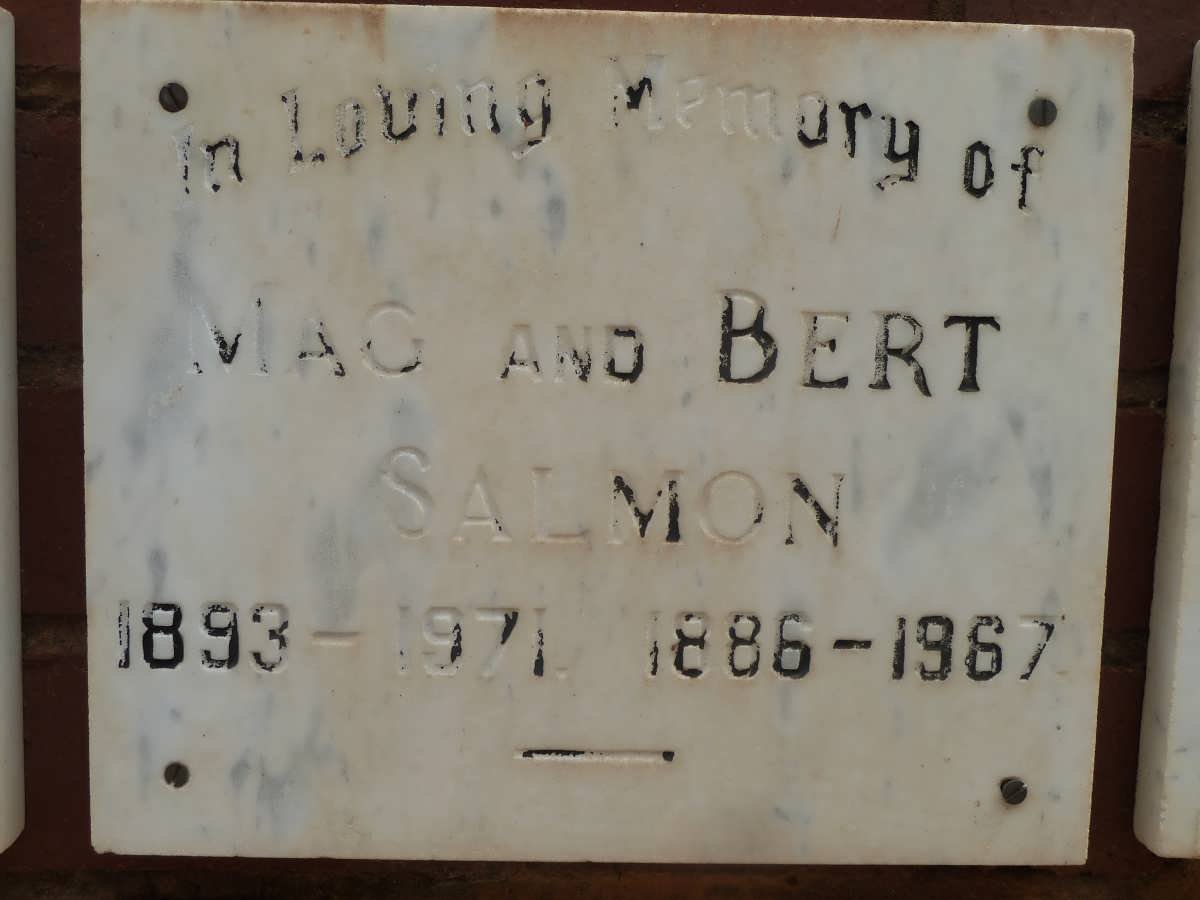 In Loving Memory of
MAG AND BERT
SALMON
1893 - 1971. 1886 - 1967